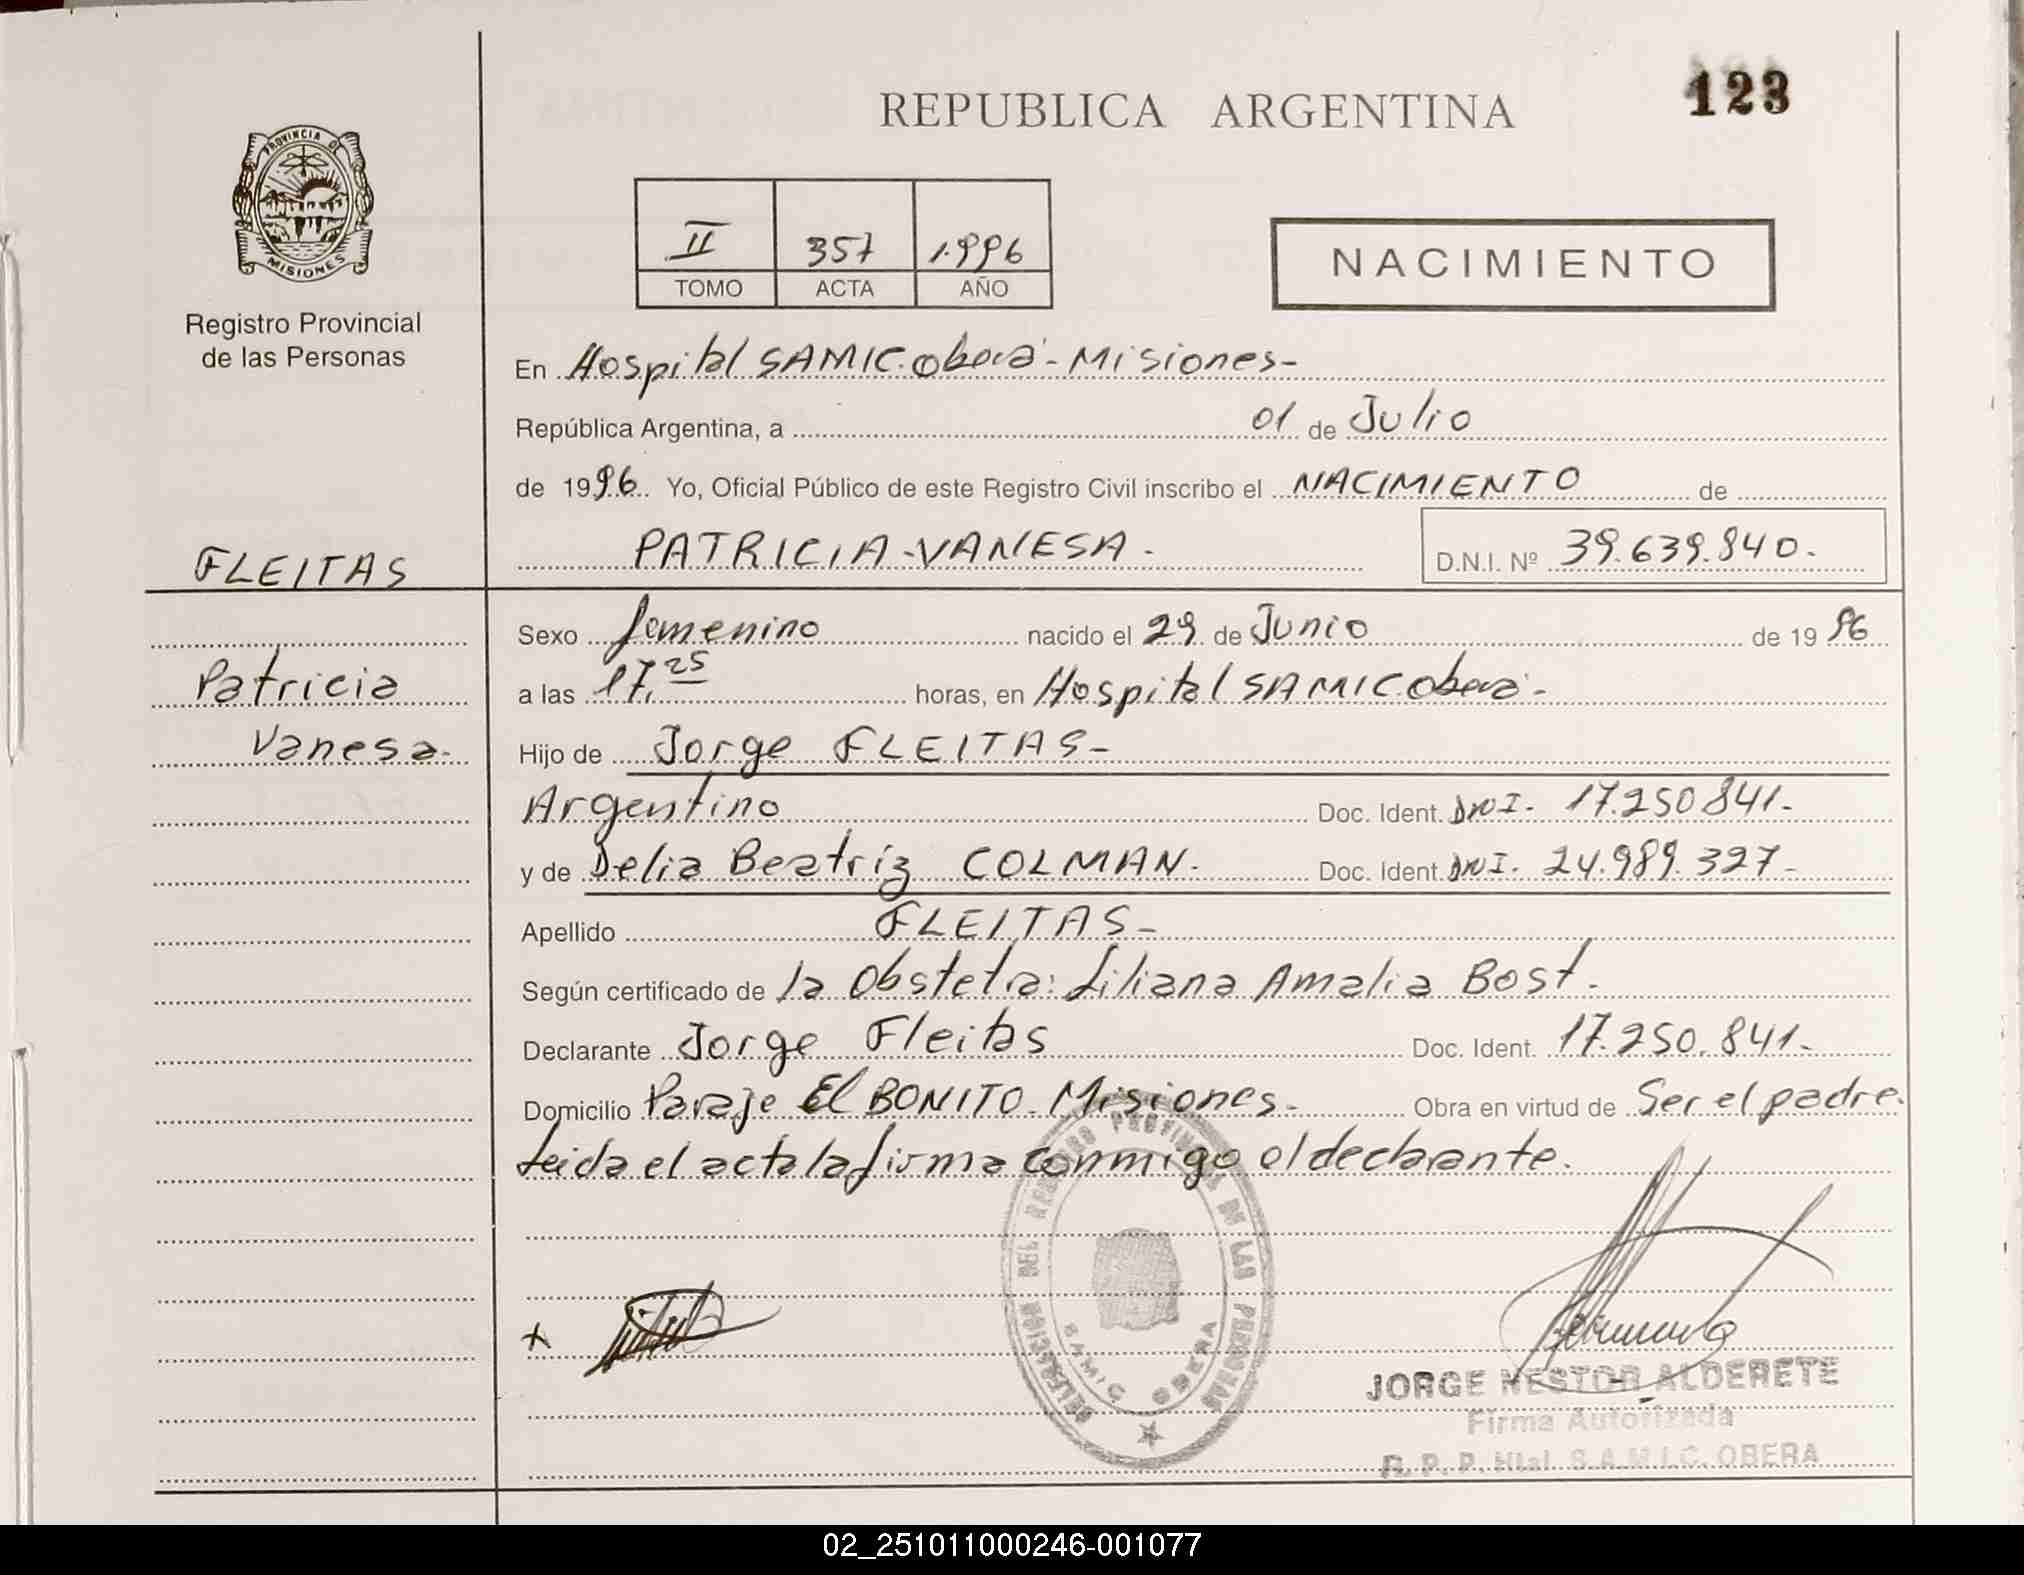 123
REPUBLICA ARGENTINA
PROVINCIA DE
MISIONES
Registro Provincial
de las Personas
II 357 1.996
TOMO ACTA AÑO
NACIMIENTO
En Hospital SAMIC. Oberá - Misiones -
República Argentina, a 01 de Julio
de 1996. Yo, Oficial Público de este Registro Civil inscribo el NACIMIENTO de
FLEITAS
PATRICIA - VANESA - D.N.I. Nº 39.639.840.
Sexo femenino nacido el 29 de Junio de 19 96
Patricia
a las 17.25 horas, en Hospital SAMIC Oberá -
Vanesa -
Hijo de Jorge FLEITAS -
Argentino Doc. Ident. DNI. 17.250.841.
y de Delia Beatriz COLMAN. Doc. Ident. DNI. 24.989.327 -
Apellido FLEITAS -
Según certificado de la Obstetra: Liliana Amalia Bost.
Declarante Jorge Fleitas Doc. Ident. 17.250.841.
Domicilio Paraje El BONITO - Misiones - Obra en virtud de Ser el padre.
Leida el acta la firma conmigo el declarante.
DEL REGISTRO PROVINCIAL DE LAS PERSONAS
SAMIC OBERA
JORGE NESTOR ALDERETE
Firma Autorizada
R. P. P. Htal. S.A.M.I.C. OBERA
02_251011000246-001077